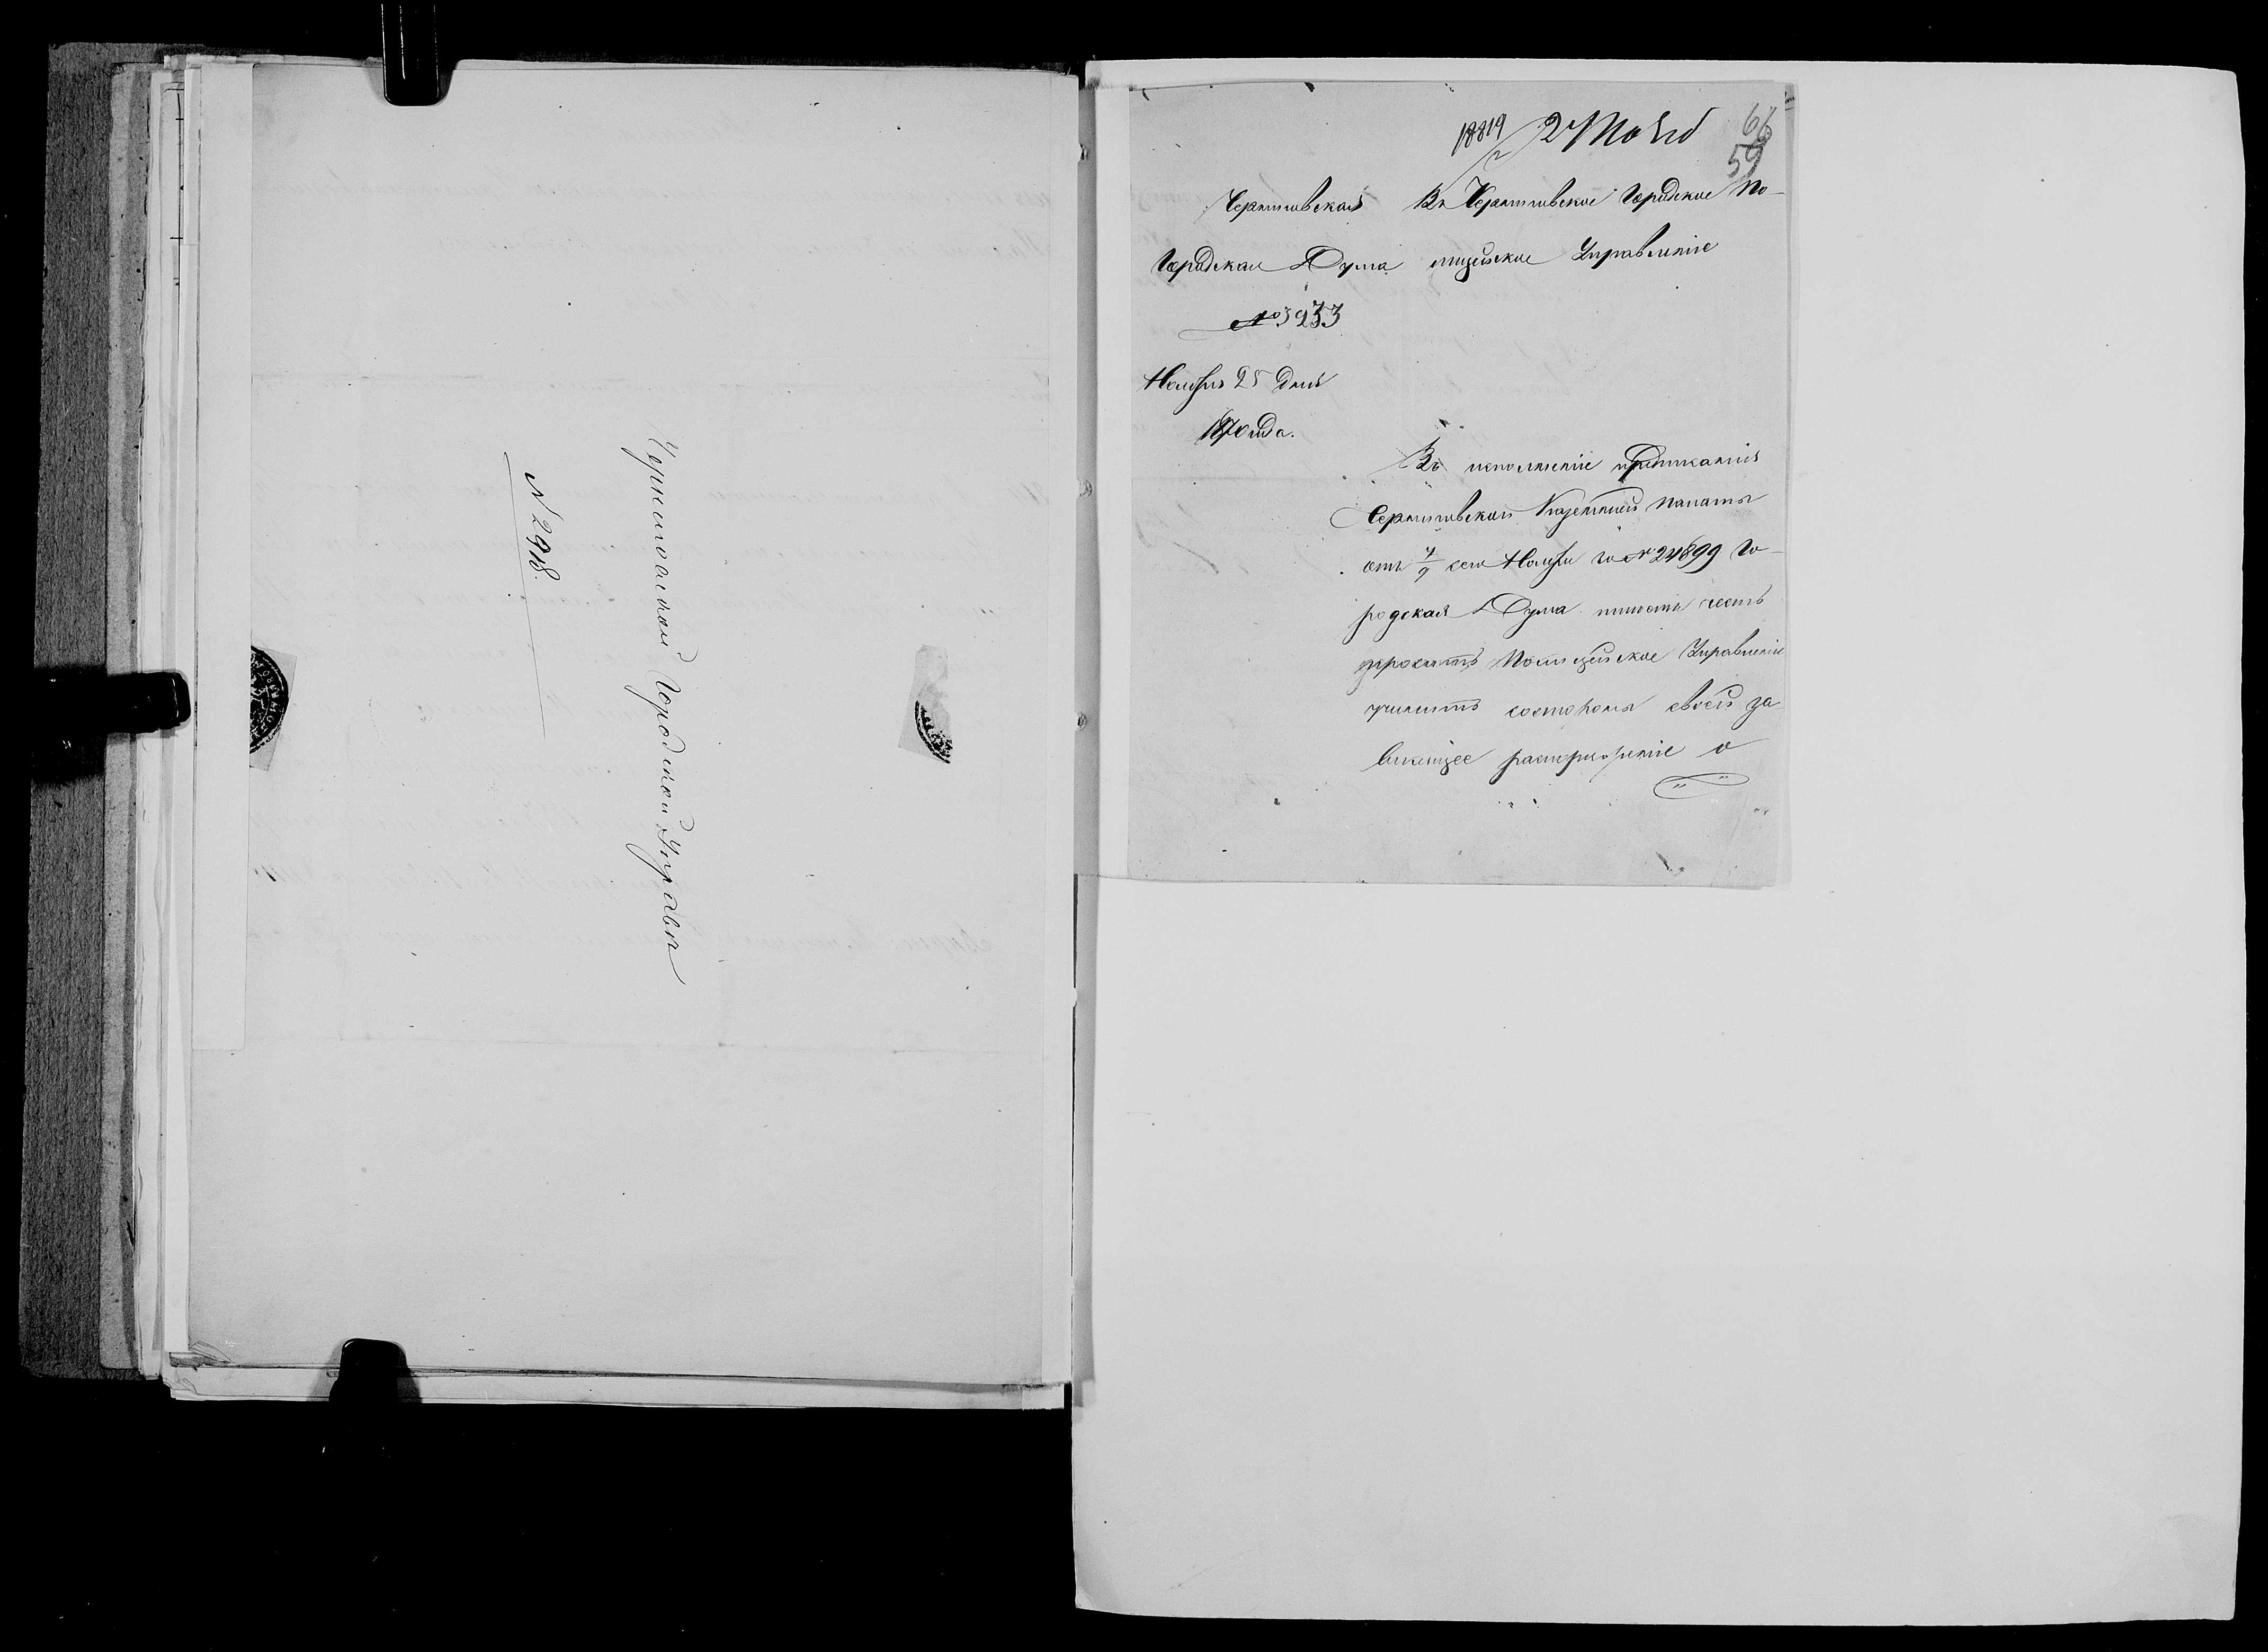 Черниговской Городской Управы
N 2918.
18819 / 27 Нояб
66
59
Черниговская
Городская Дума
№ 3933
Ноября 25 дня
1870 года.
Въ Черниговское Городское По-
лицейское Управленіе
Въ исполненіе предписанія
Черниговской Казенной Палаты
отъ 7/9 сего Ноября за № 24899 Го-
родская Дума имѣетъ честь
просить Полицейское Управленіе
учинить состороны своей за
висящее распоряженіе о